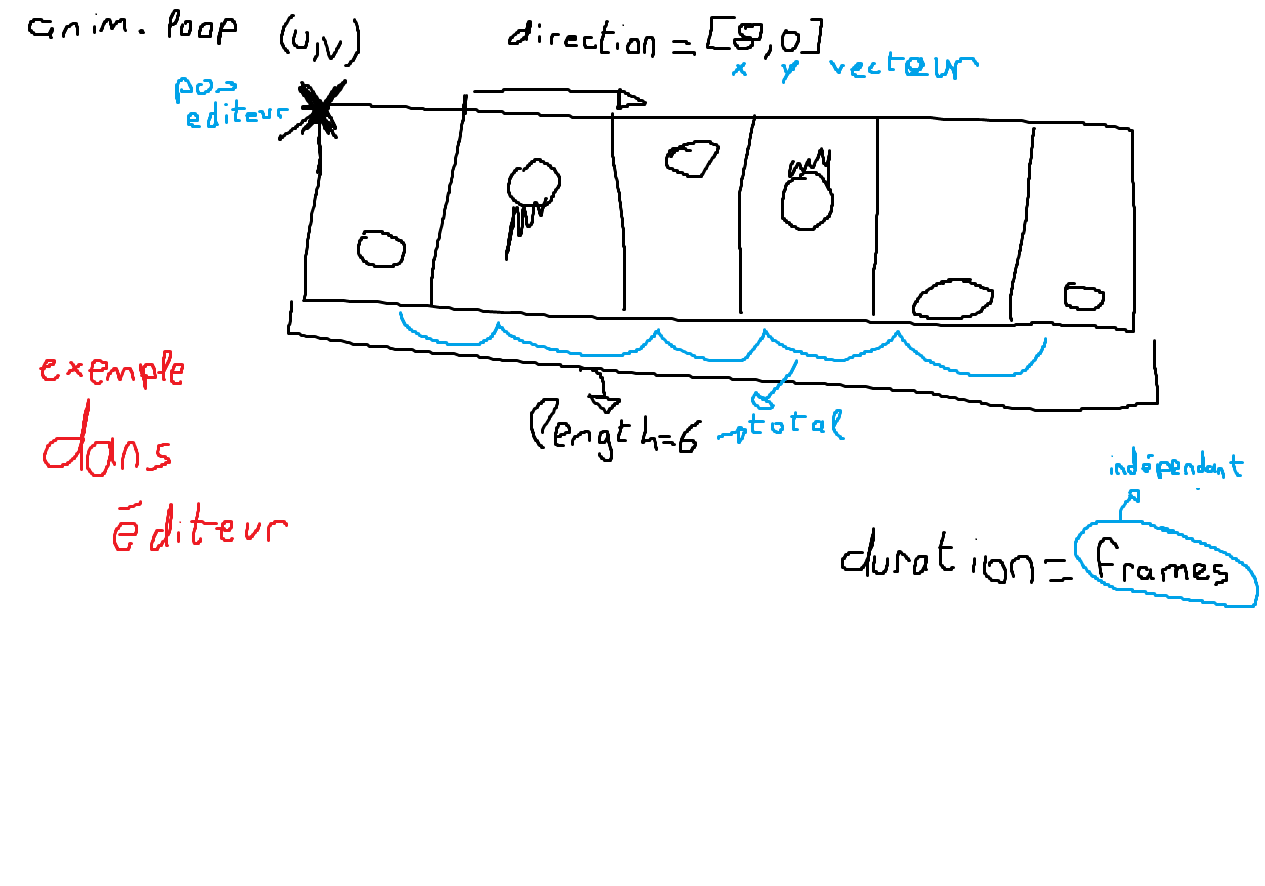 anim. loop (u,v)
direction = [8,0]
x y vecteur
pos
editeur
length=6 → total
exemple
dans
éditeur
indépendant
duration = frames